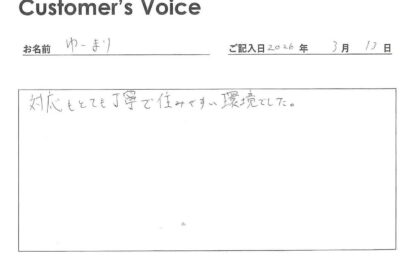 Customer's Voice
お名前 ゆーまり ご記入日 2026 年 3 月 13 日
対応もとても丁寧で住みやすい環境でした。